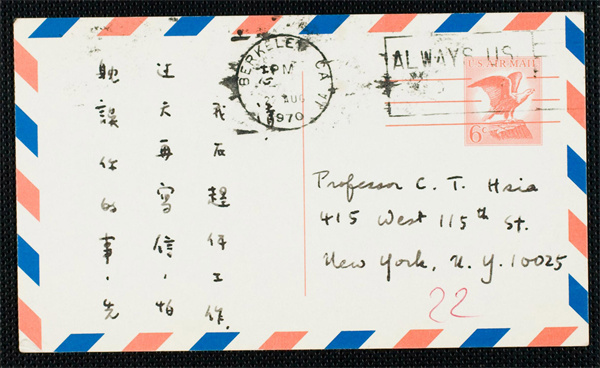 BERKELEY CA
PM
AUG
1970
ALWAYS US
U.S. AIR MAIL
6c
我在趕件工作,
过天再寫信,怕
耽誤你的事,先
Professor C. T. Hsia
415 West 115th St.
New York, N. Y. 10025
22